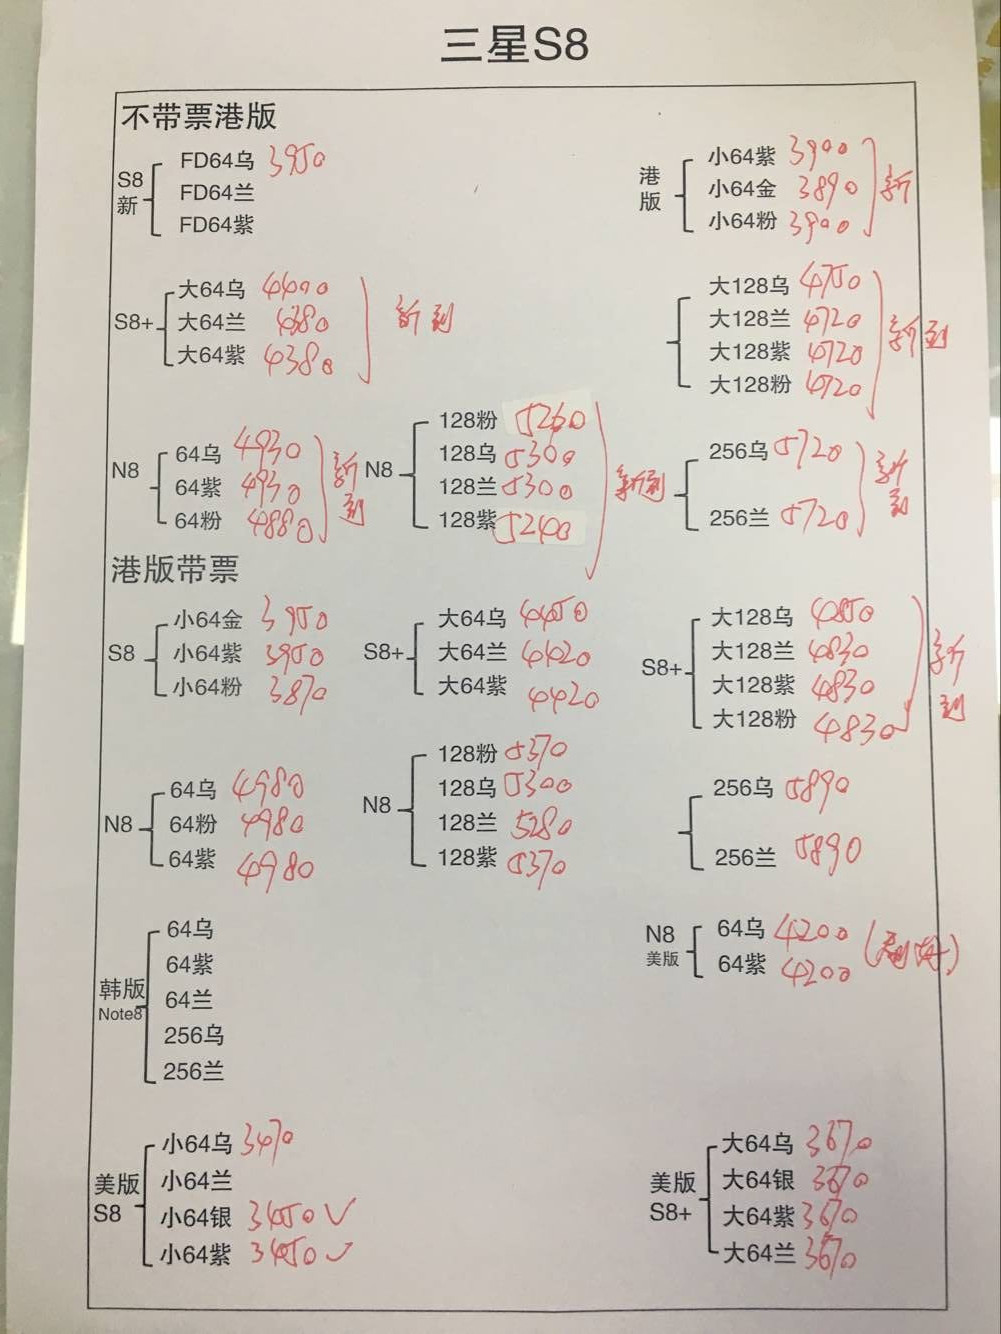 三星S8
不带票港版
S8
新
FD64乌 3950
FD64兰
FD64紫
港
版
小64紫 3900
小64金 3890
小64粉 3900
新
S8+
大64乌 4400
大64兰 4380
大64紫 4380
新到
大128乌 4750
大128兰 4720
大128紫 4720
大128粉 4720
新到
N8
64乌 4930
64紫 4930
64粉 4880
新到
N8
128粉 5260
128乌 5300
128兰 5300
128紫 5240
新到
256乌 5720
256兰 5720
新到
港版带票
S8
小64金 3950
小64紫 3950
小64粉 3870
S8+
大64乌 4450
大64兰 4420
大64紫 4420
S8+
大128乌 4850
大128兰 4830
大128紫 4830
大128粉 4830
新到
N8
64乌 4980
64粉 4980
64紫 4980
N8
128粉 5370
128乌 5300
128兰 5280
128紫 5370
256乌 5890
256兰 5890
韩版
Note8
64乌
64紫
64兰
256乌
256兰
N8
美版
64乌 4200
64紫 4200
美版
S8
小64乌 3470
小64兰
小64银 3450 ✓
小64紫 3450 ✓
美版
S8+
大64乌 3670
大64银 3670
大64紫 3670
大64兰 3670